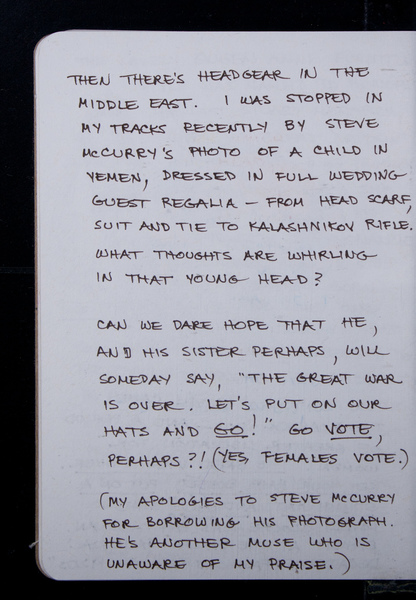 THEN THERE'S HEADGEAR IN THE
MIDDLE EAST. I WAS STOPPED IN
MY TRACKS RECENTLY BY STEVE
McCURRY'S PHOTO OF A CHILD IN
YEMEN, DRESSED IN FULL WEDDING
GUEST REGALIA – FROM HEAD SCARF,
SUIT AND TIE TO KALASHNIKOV RIFLE.
WHAT THOUGHTS ARE WHIRLING
IN THAT YOUNG HEAD?
CAN WE DARE HOPE THAT HE,
AND HIS SISTER PERHAPS, WILL
SOMEDAY SAY, "THE GREAT WAR
IS OVER. LET'S PUT ON OUR
HATS AND GO!" GO VOTE,
PERHAPS?! (YES, FEMALES VOTE.)
(MY APOLOGIES TO STEVE McCURRY
FOR BORROWING HIS PHOTOGRAPH.
HE'S ANOTHER MUSE WHO IS
UNAWARE OF MY PRAISE.)